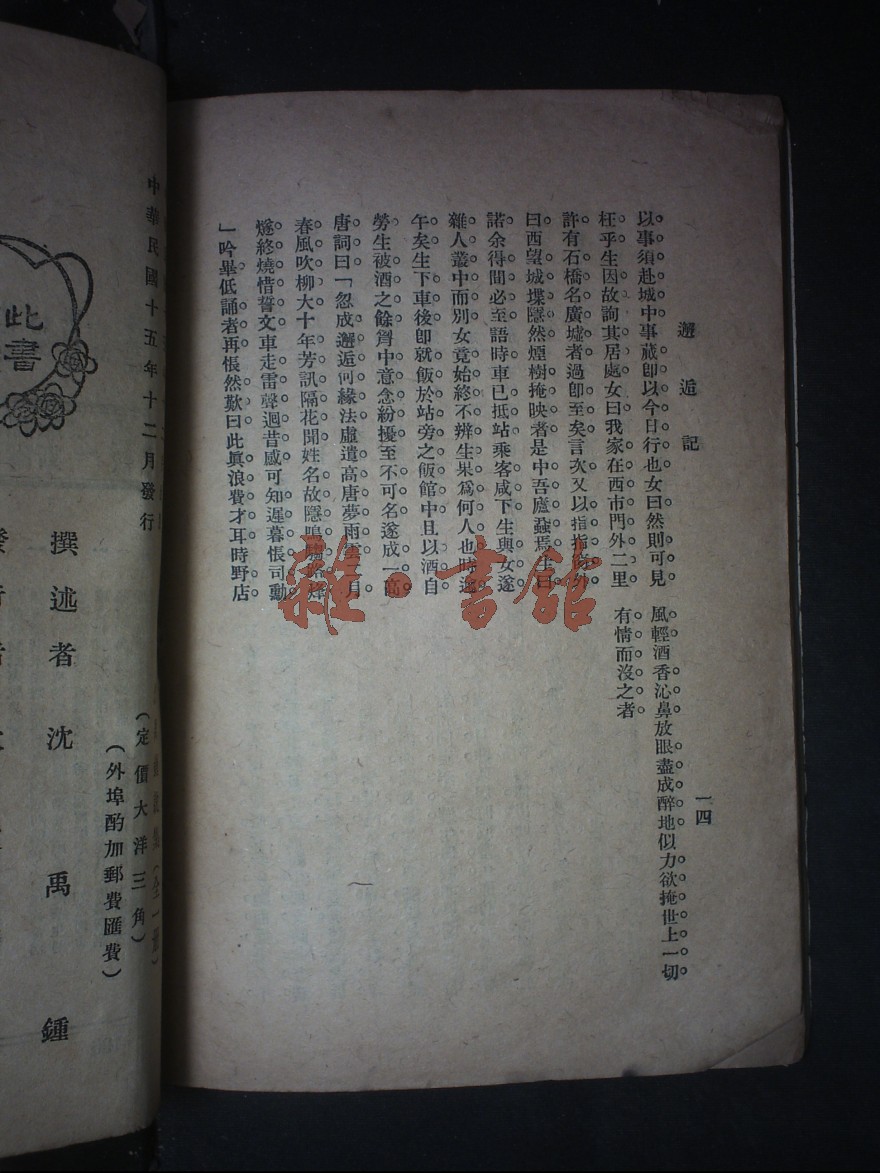 邂逅記
一四
以事須赴城中事蕆卽以今日行也女曰然則可見
枉乎生因故詢其居處女曰我家在西市門外二里
許有石橋名廣墟者過卽至矣言次又以指指窗外
曰西望城堞隱然煙樹掩映者是中吾廬蟄焉生曰
諾余得閒必至語時車已抵站乘客咸下生與女遂
雜人叢中而別女竟始終不辨生果爲何人也時迤
午矣生下車後卽就飯於站旁之飯館中且以酒自
勞生被酒之餘胷中意念紛擾至不可名遂成一高
唐詞曰「忽成邂逅何緣法虛遣高唐夢雨雲一月
春風吹柳大十年芳訊隔花聞姓名故隱鳴
燧終燒惜誓文車走雷聲迴昔感可知遲暮悵司勳
」吟畢低誦者再悵然歎曰此眞浪費才耳時野店
風輕酒香沁鼻放眼盡成醉地似力欲掩世上一切
有情而沒之者
中華民國十五年十二月發行
(定價大洋三角)
(外埠酌加郵費匯費)
此書
撰述者沈禹鍾
雜·書館